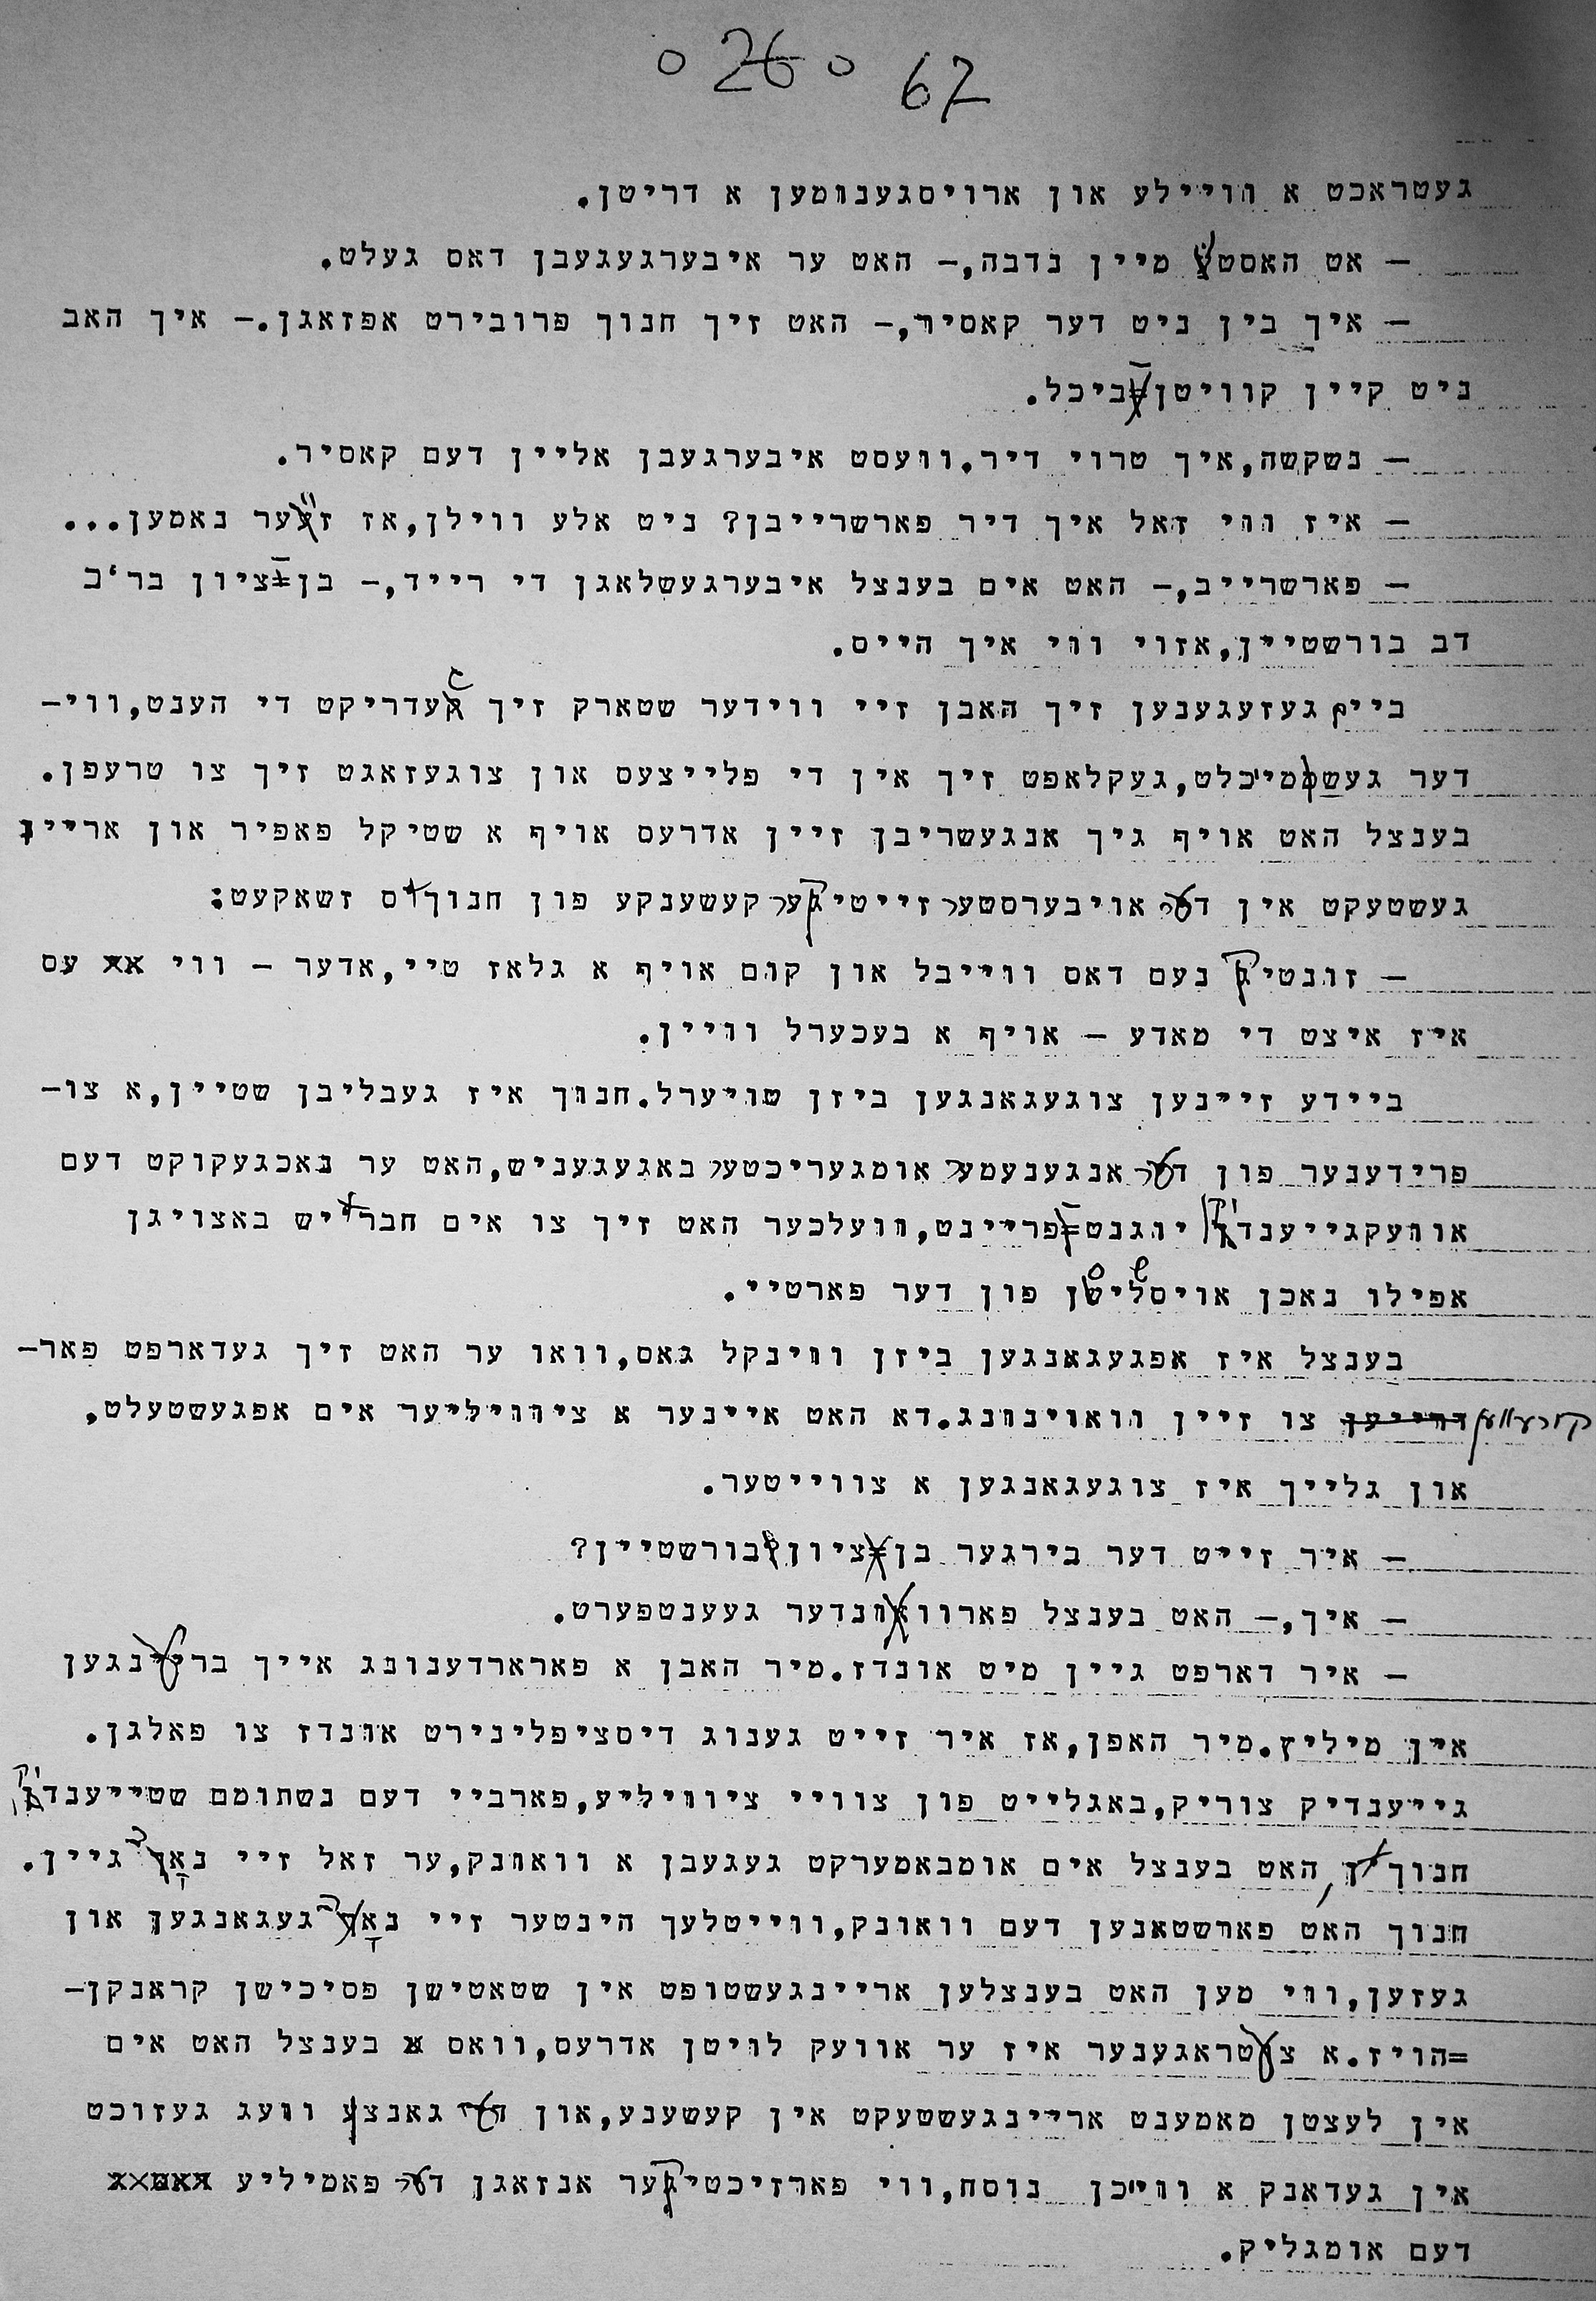 26 67
געטראכט א ווײילע און ארויסגענומען א דריטן.
— אט האסטו מיין נדבה,— האט ער איבערגעגעבן דאס געלט.
— איך בין ניט דער קאסיר,— האט זיך חנוך פרובירט אפזאגן.— איך האב
ניט קיין קוויטן־ביכל.
— נשקשה,איך טרוי דיר.וועסט איבערגעבן אליין דעם קאסיר.
— איז ווי זאל איך דיר פארשרייבן? ניט אלע ווילן,אז זייער נאמען...
— פארשרייב,— האט אים בענצל איבערגעשלאגן די רייד,— בן־ציון בר'ב
דב בורשטיין,אזוי ווי איך הייס.
ביים געזעגענען זיך האבן זיי ווידער שטארק זיך געדריקט די הענט,ווי—
דער געשמייכלט,געקלאפט זיך אין די פלייצעס און צוגעזאגט זיך צו טרעפן.
בענצל האט אויף גיך אנגעשריבן זיין אדרעס אויף א שטיקל פאפיר און אריינ
געשטעקט אין דער אויבערסטער זייטיקער קעשענקע פון חנוכס זשאקעט:
— זונטיק נעם דאס ווייבל און קום אויף א גלאז טיי,אדער — ווי עס
איז איצט די מאדע — אויף א בעכערל וויין.
ביידע זיינען צוגעגאנגען ביזן טויערל.חנוך איז געבליבן שטיין,א צו—
פרידענער פון דער אנגענעמער אומגעריכטער באגעגעניש,האט ער נאכגעקוקט דעם
אוועקגייענדיקן יוגנט־פריינט,וועלכער האט זיך צו אים חבריש באצויגן
אפילו נאכן אויסשליסן פון דער פארטיי.
בענצל איז אפגעגאנגען ביזן ווינקל גאס,וואו ער האט זיך געדארפט פאר—
קירעווען צו זיין וואוינונג.דא האט איינער א ציוויליער אים אפגעשטעלט,
און גלייך איז צוגעגאנגען א צווייטער.
— איר זייט דער בירגער בן ציון בורשטיין?
— איך,— האט בענצל פארוווּנדער געענטפערט.
— איר דארפט גיין מיט אונדז.מיר האבן א פארארדענונג אייך ברענגען
אין מיליץ.מיר האפן,אז איר זייט גענוג דיסציפלינירט אונדז צו פאלגן.
גייענדיק צוריק,באגלייט פון צוויי ציוויליע,פארביי דעם נשתומם שטייענדיקן
חנוכן, האט בענצל אים אומבאמערקט געגעבן א וואונק,ער זאל זיי נאָכגיין.
חנוך האט פארשטאנען דעם וואונק,ווייטלעך הינטער זיי נאָכגעגאנגען און
געזען,ווי מען האט בענצלען אריינגעשטופט אין שטאטישן פסיכישן קראנקן—
=הויז.א צעטראגענער איז ער אוועק לויטן אדרעס,וואס בענצל האט אים
אין לעצטן מאמענט אריינגעשטעקט אין קעשענע,און דעם גאנצן וועג געזוכט
אין געדאנק א ווייכן נוסח,ווי פארזיכטיקער אנזאגן דער פאמיליע
דעם אומגליק.